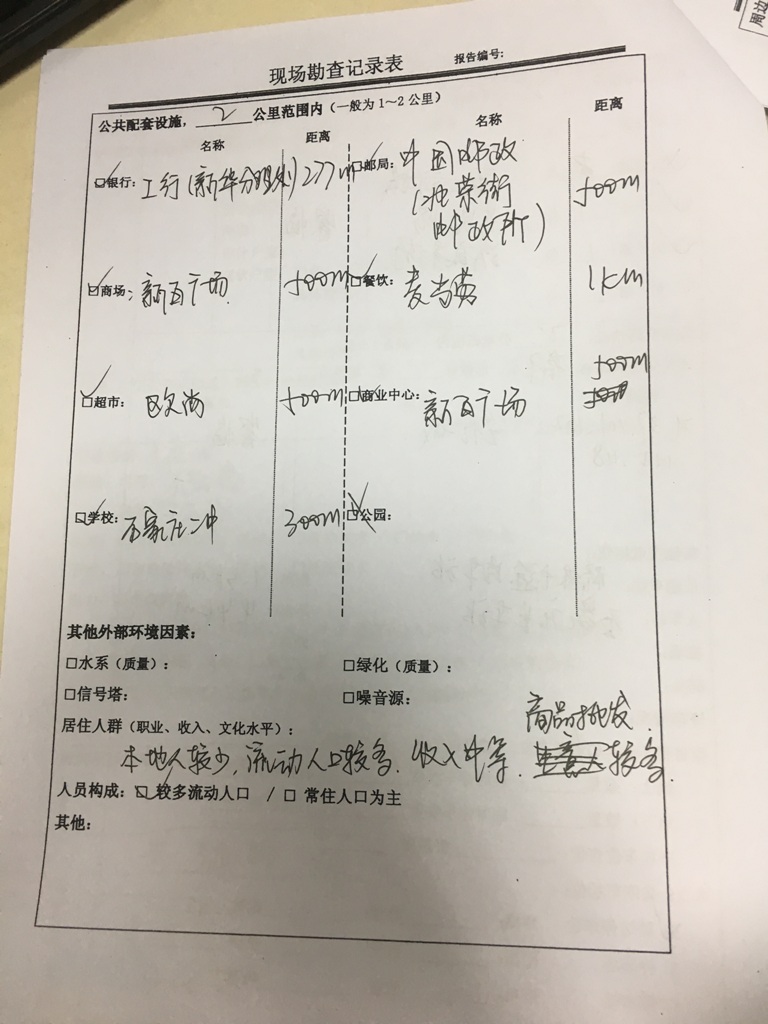 周边
现场勘查记录表 报告编号:
公共配套设施, 2 公里范围内(一般为1~2公里)
名称 距离 名称 距离
☑银行: 工行(新华分理处) 277m ☑邮局: 中国邮政 500m
(北荣街
邮政所)
☑商场: 新百广场 500m ☑餐饮: 麦当劳 1km
☑超市: 欧尚 500m ☑商业中心: 新百广场 500m
☑学校: 石家庄二中 300m □公园:
其他外部环境因素:
□水系(质量): □绿化(质量):
□信号塔: □噪音源:
居住人群(职业、收入、文化水平): 商品批发
本地人较少,流动人口较多,收入中等, 较多.
人员构成: ☑ 较多流动人口 / □ 常住人口为主
其他: